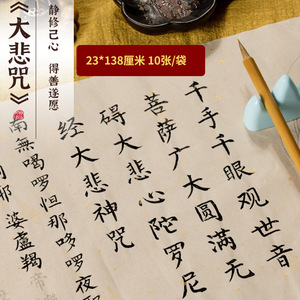 《大悲咒》
静修己心 得善遂愿
23*138厘米 10张/袋
千手千眼观世音
菩萨广大圆满无
碍大悲心陀罗尼
经大悲神咒
南無喝囉怛那哆囉夜
婆盧羯